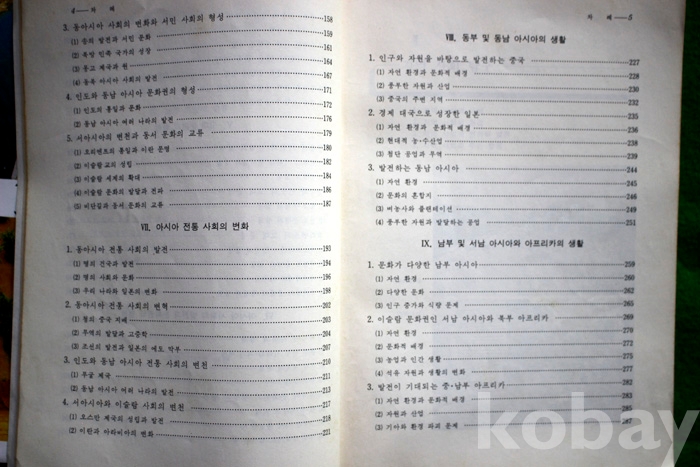 4——차 례
3. 동아시아 사회의 변화와 서민 사회의 형성 158
(1) 송의 발전과 서민 문화 159
(2) 북방 민족 국가의 성장 161
(3) 몽고 제국과 원 164
(4) 동북 아시아 사회의 발전 167
4. 인도와 동남 아시아 문화권의 형성 171
(1) 인도의 통일과 문화 172
(2) 동남 아시아 여러 나라의 발전 176
5. 서아시아의 변천과 동서 문화의 교류 179
(1) 오리엔트의 통일과 이란 문명 180
(2) 이슬람교의 성립 182
(3) 이슬람 세계의 확대 183
(4) 이슬람 문화의 발달과 전파 186
(5) 비단길과 동서 문화의 교류 187
Ⅶ. 아시아 전통 사회의 변화
1. 동아시아 전통 사회의 발전 193
(1) 명의 건국과 발전 194
(2) 명의 사회와 문화 196
(3) 우리 나라와 일본의 변화 198
2. 동아시아 전통 사회의 변혁 202
(1) 청의 중국 지배 203
(2) 무역의 발달과 고증학 204
(3) 조선의 발전과 일본의 에도 막부 207
3. 인도와 동남 아시아 전통 사회의 변천 210
(1) 무굴 제국 211
(2) 동남 아시아 여러 나라의 발전 213
4. 서아시아와 이슬람 사회의 변천 217
(1) 오스만 제국의 성립과 발전 218
(2) 이란과 아라비아의 변화 221
차 례——5
Ⅷ. 동부 및 동남 아시아의 생활
1. 인구와 자원을 바탕으로 발전하는 중국 227
(1) 자연 환경과 문화적 배경 228
(2) 풍부한 자원과 산업 230
(3) 중국의 주변 지역 232
2. 경제 대국으로 성장한 일본 235
(1) 자연 환경과 문화적 배경 236
(2) 현대적 농·수산업 238
(3) 첨단 공업과 무역 239
3. 발전하는 동남 아시아 244
(1) 자연 환경 245
(2) 문화의 혼합지 246
(3) 벼농사와 플랜테이션 248
(4) 풍부한 자원과 발달하는 공업 251
Ⅸ. 남부 및 서남 아시아와 아프리카의 생활
1. 문화가 다양한 남부 아시아 259
(1) 자연 환경 260
(2) 다양한 문화 262
(3) 인구 증가와 식량 문제 265
2. 이슬람 문화권인 서남 아시아와 북부 아프리카 269
(1) 자연 환경 270
(2) 문화적 배경 272
(3) 농업과 민간 생활 275
(4) 석유 자원과 생활의 변화 277
3. 발전이 기대되는 중·남부 아프리카 282
(1) 자연 환경과 문화적 배경 283
(2) 자원과 산업 285
(3) 기아와 환경 외의 문제 287
kobay